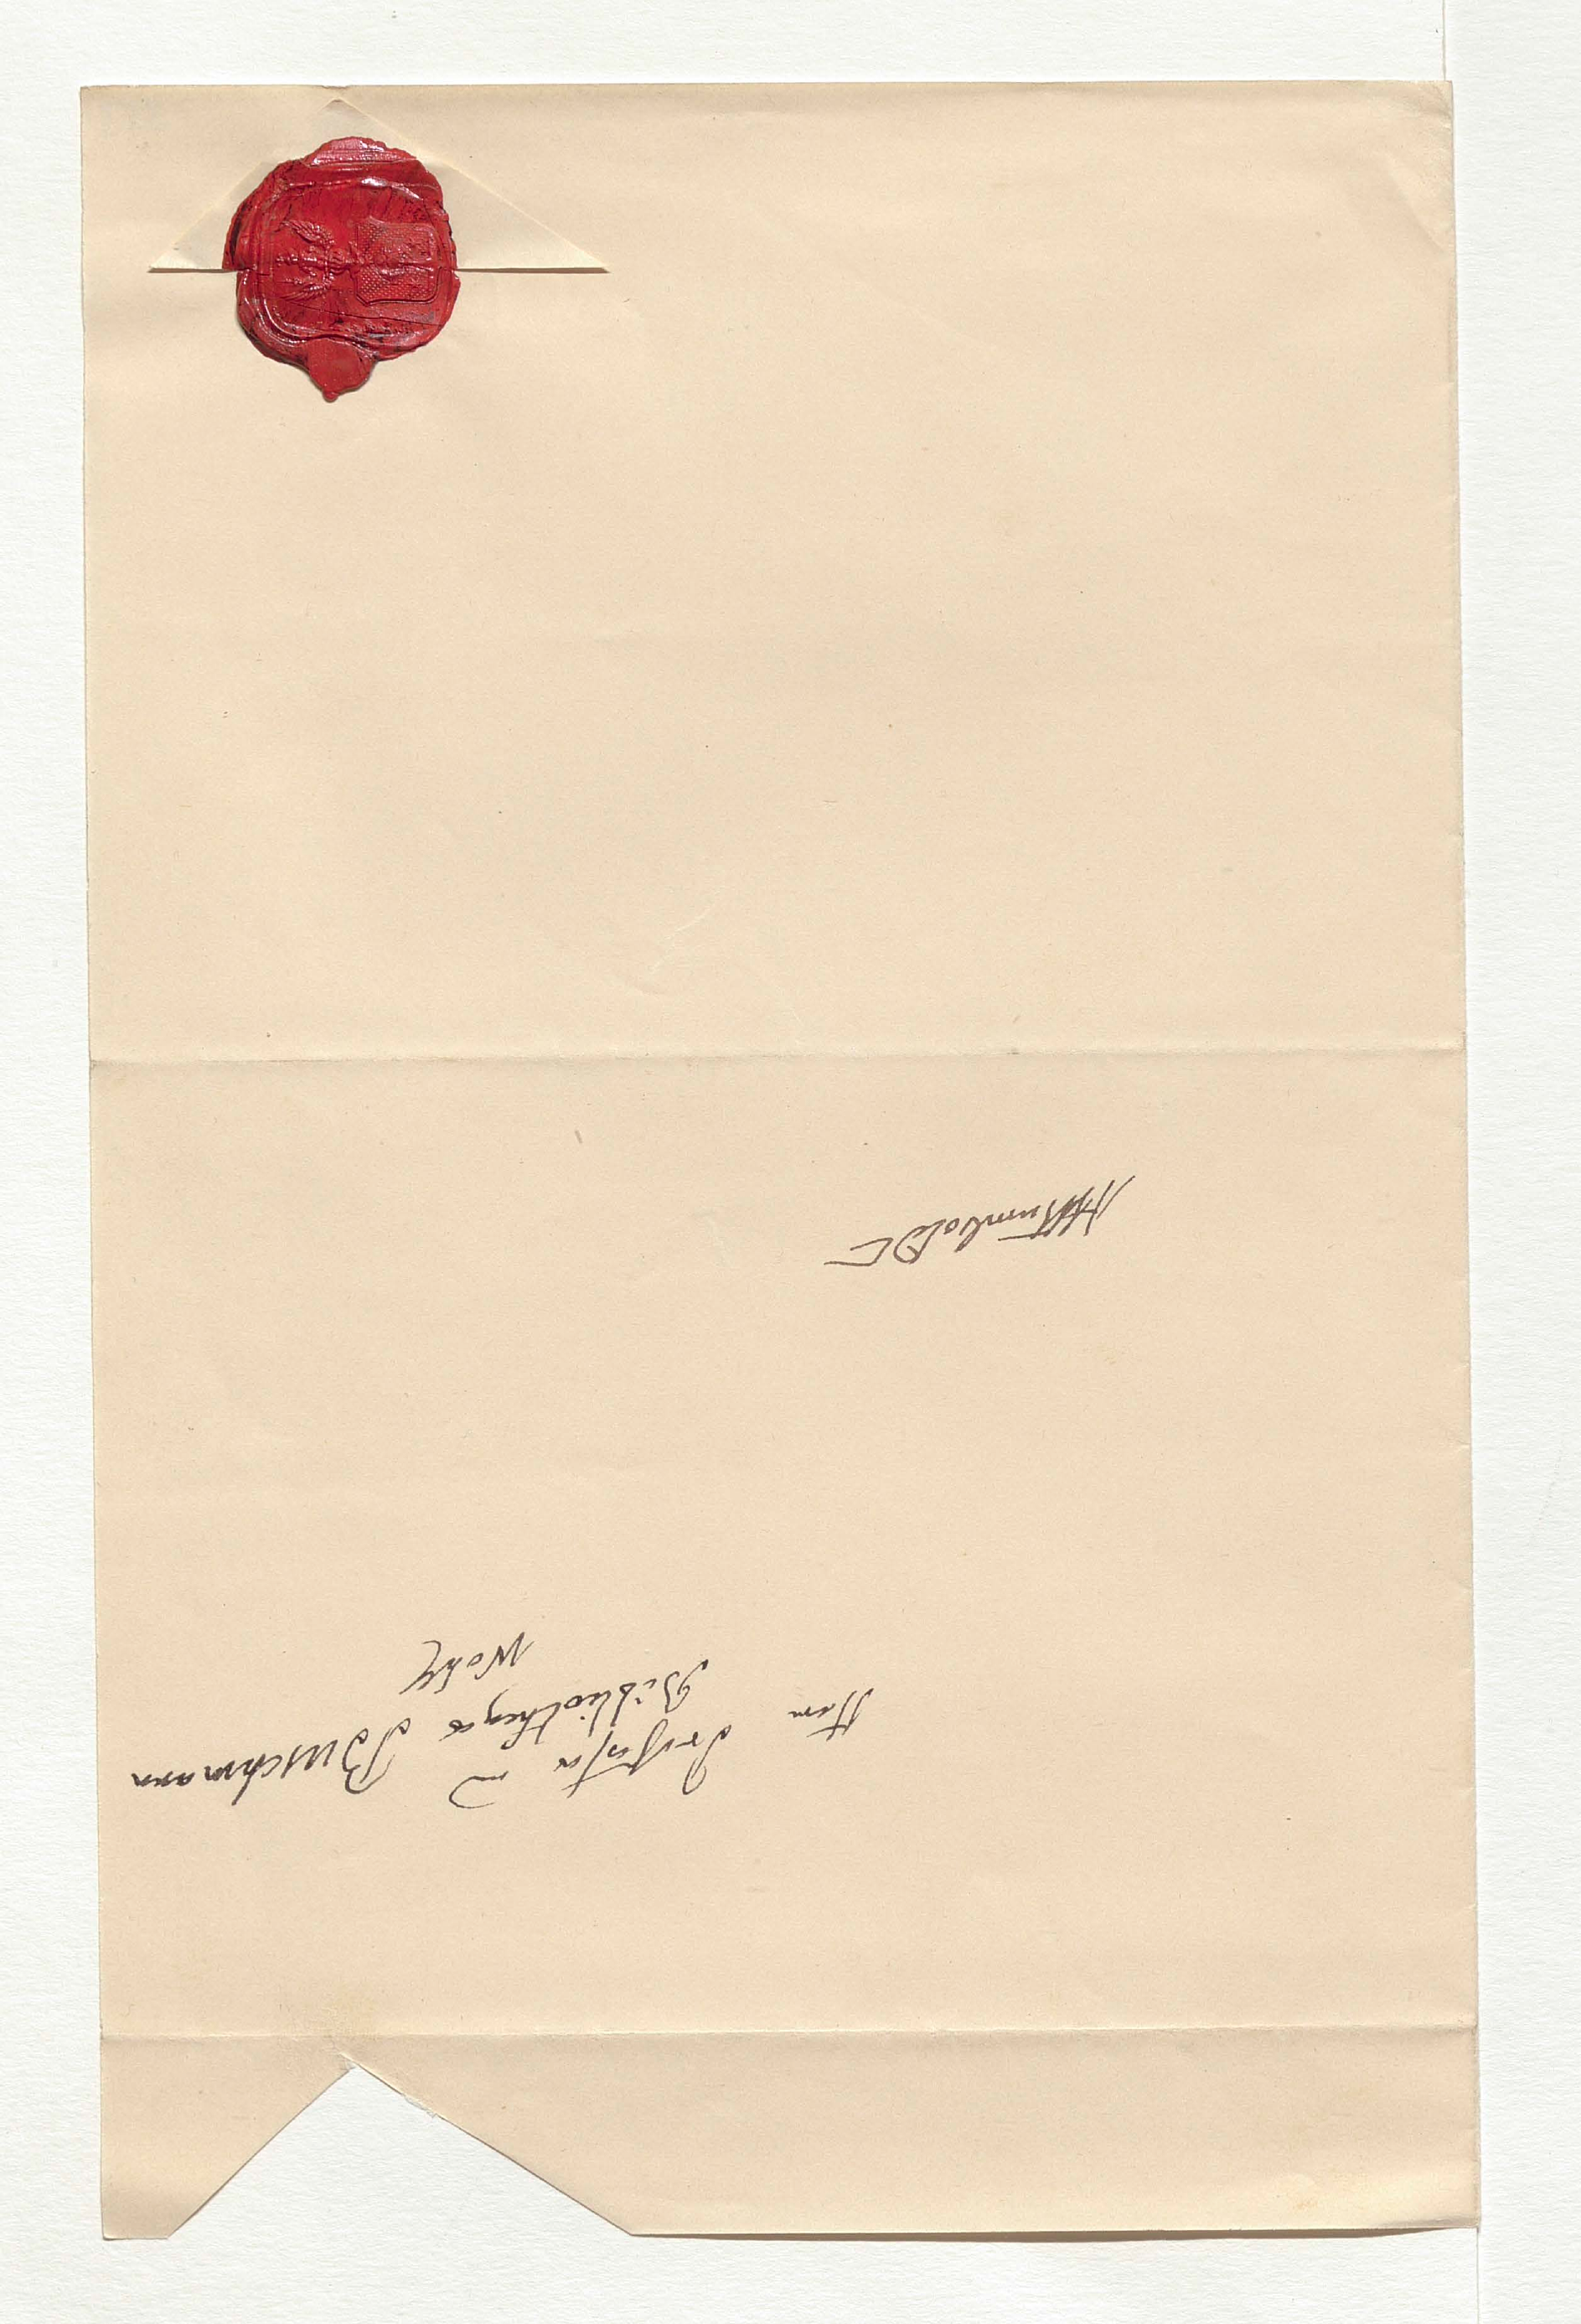 Herrn
Professor u
Bibliothecar Buschmann
AvHumboldt